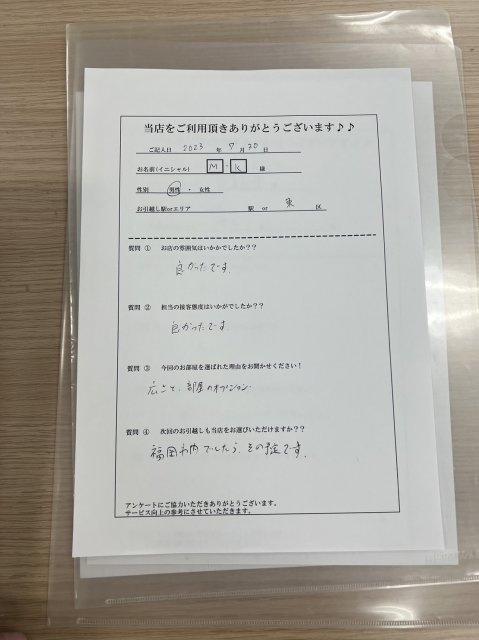 当店をご利用頂きありがとうございます♪♪
ご記入日 2023 年 7 月 30 日
お名前(イニシャル) M・K 様
性別 男性 ・ 女性
お引越し駅orエリア 駅 or 東 区
質問 ① お店の雰囲気はいかかでしたか??
良かったです
質問 ② 担当の接客態度はいかがでしたか??
良かったです
質問 ③ 今回のお部屋を選ばれた理由をお聞かせください!
広さと、部屋のオプション
質問 ④ 次回のお引越しも当店をお選びいただけますか??
福岡市内でしたら、その予定です。
アンケートにご協力いただきありがとうございます。
サービス向上の参考にさせていただきます。